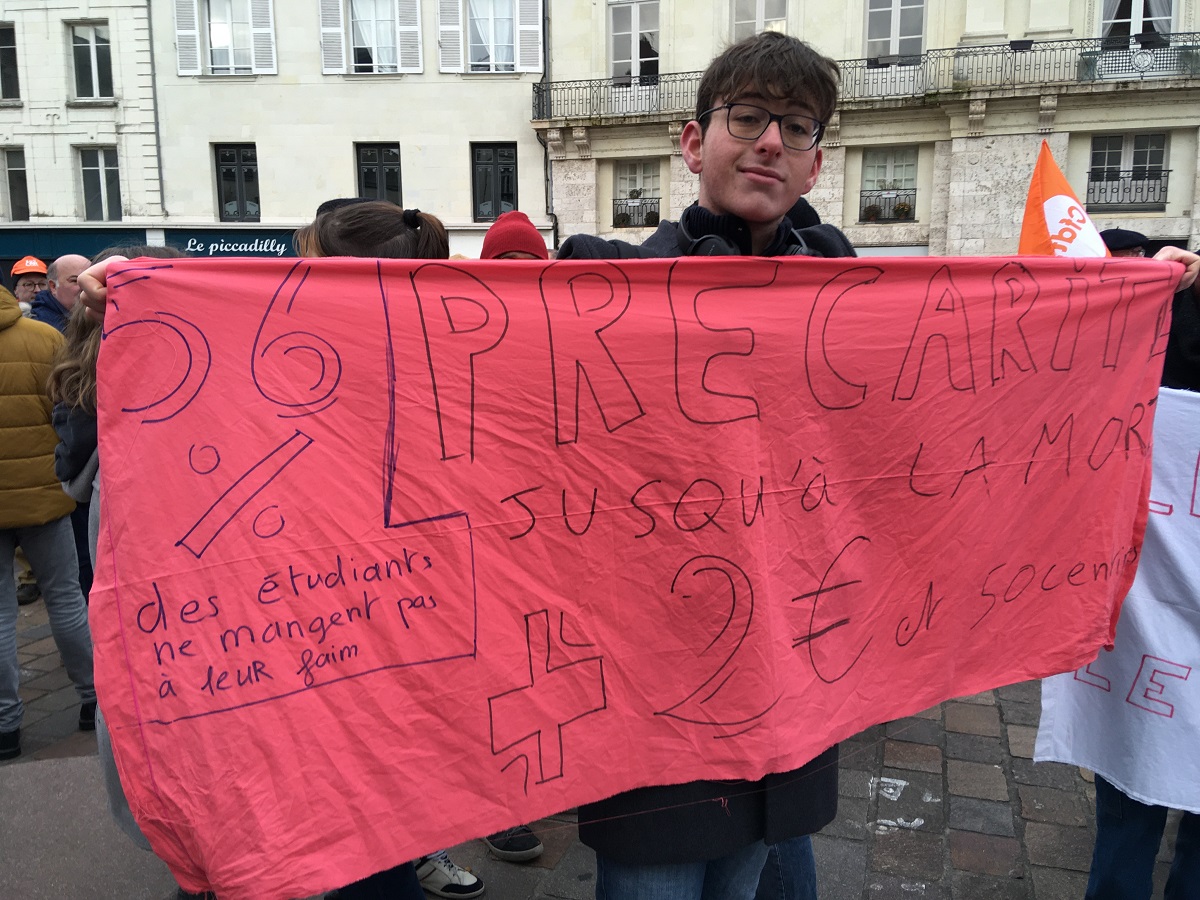 Le piccadilly
Cfdt
56
%
des étudiants
ne mangent pas
à leur faim
PRECARITE
JUSQU'à LA MORT
+ 2€ et 50 centimes
LE